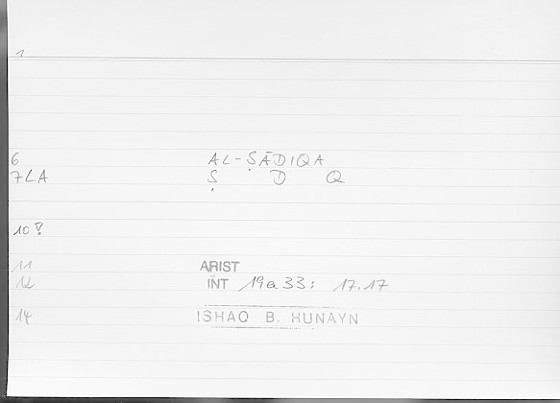 1
6 AL-ṢĀDIQA
7LA Ṣ D Q
10?
11 ARIST
12 INT 19a33: 17.17
14 ISHAQ B. HUNAYN